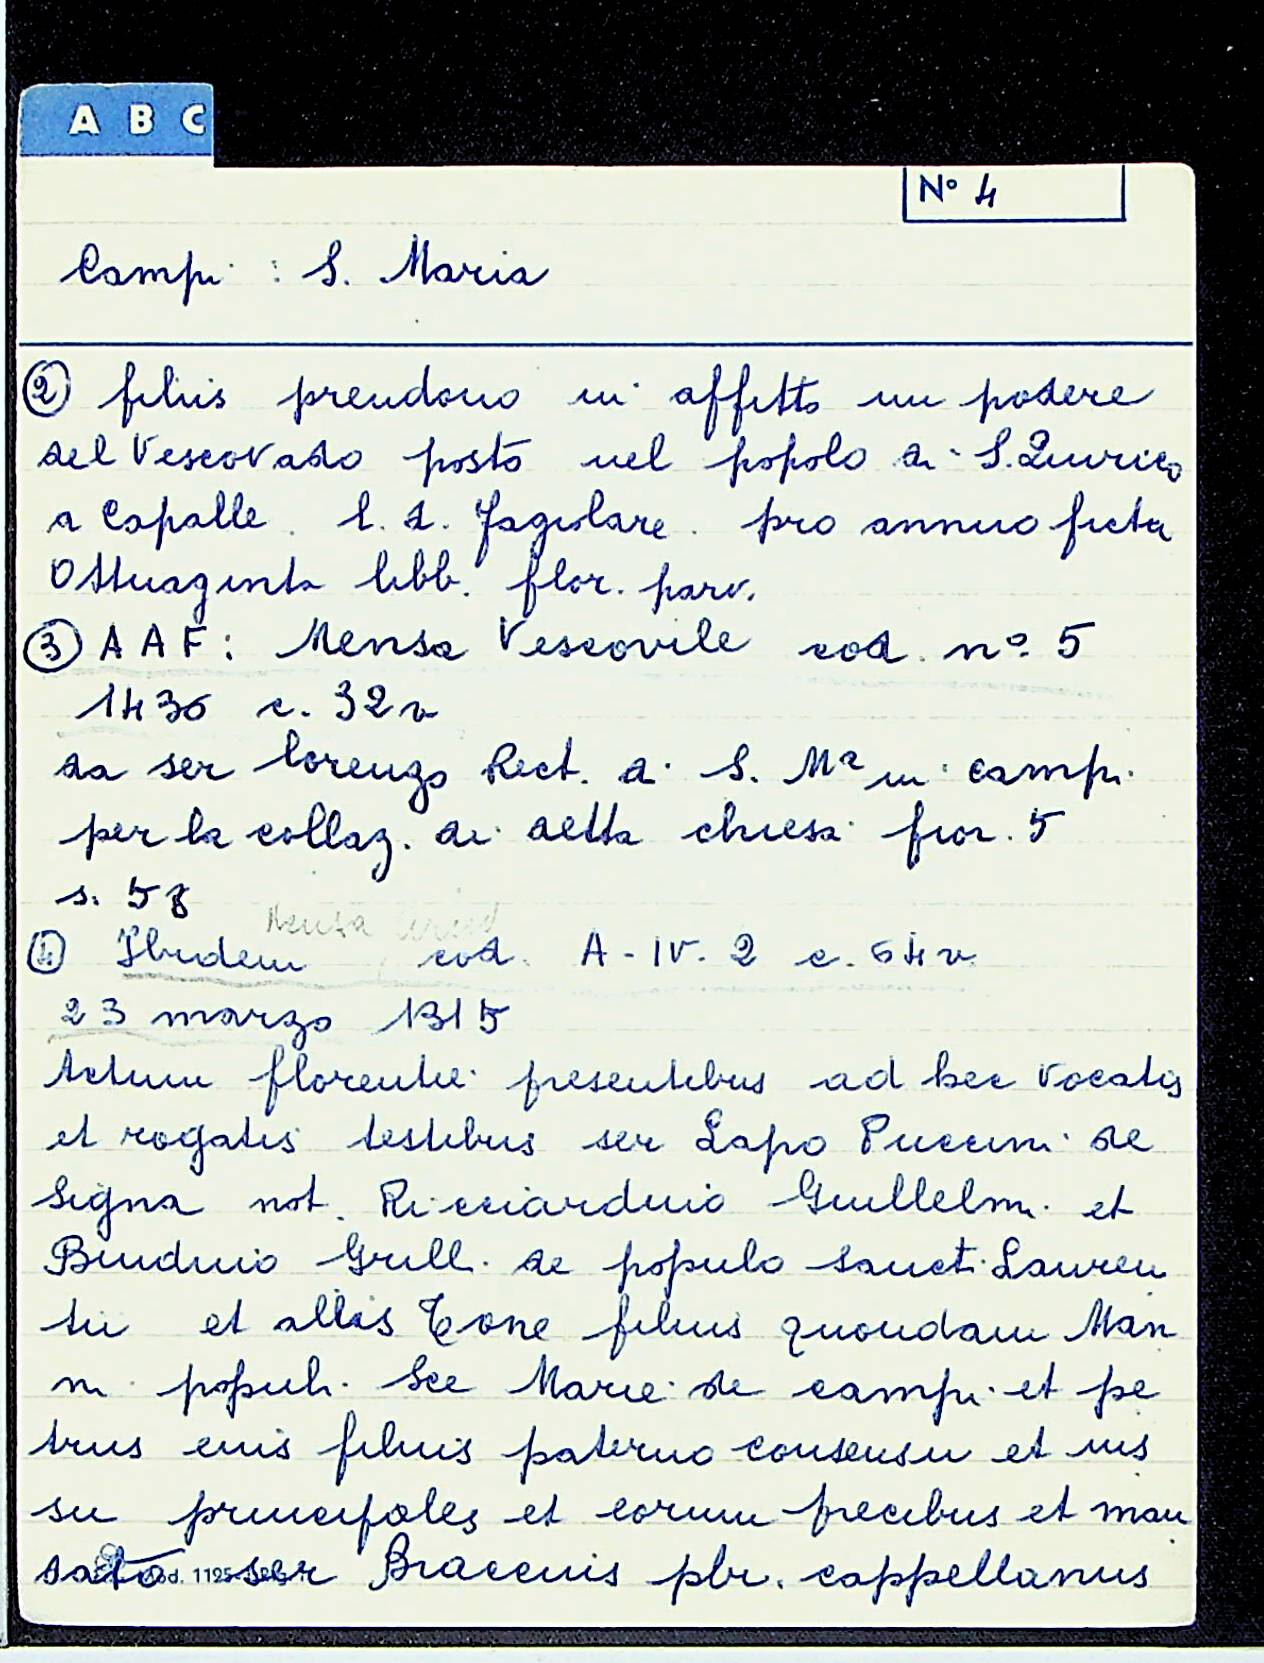 A B C
N° 4
Campi : S. Maria
② filius prendono in affitto un podere
del Vescovado posto nel popolo di S. Quirico
a Capalle. l. d. Fagiolare. pro annuo fictu
Ottuaginta libb. flor. parv.
③ A A F : Mensa Vescovile cod. n°. 5
1436 c. 32 v
da ser Lorenzo Rect. di S. Mª in Campi
per la collaz. di detta chiesa fior. 5
s. 58
Mensa
④ Ibidem, cod. A-IV. 2 c. 64 v
23 marzo 1315
Actum florentie presentibus ad hec vocatis
et rogatis testibus ser Lapo Puccini de
Signa not. Ricciarduio Guillelmi et
Binduio Grilli de populo sancti Lauren
tii et aliis Cone filius quondam Man
ni populi Sce Marie de Campi et pe
trus eius filius paterno consensu et ius
su principales et eorum precibus et man
dato ser Braccius pbr. cappellanus
od. 1125